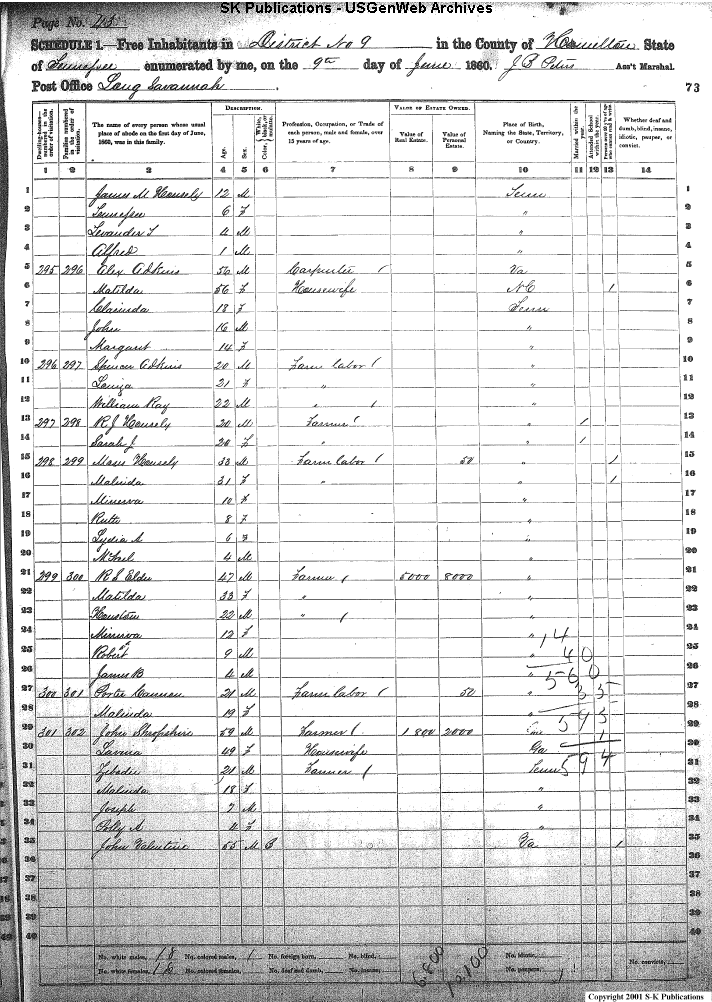 SK Publications - USGenWeb Archives
Page No. 45
SCHEDULE 1.—Free Inhabitants in District No 9 in the County of Hamilton State
of Tennessee enumerated by me, on the 9th day of June 1860. J B Ass't Marshal.
Post Office Long Savannah 73
DESCRIPTION. VALUE OF ESTATE OWNED.
Dwelling-houses—numbered in the order of visitation. Families numbered in the order of visitation. The name of every person whose usual place of abode on the first day of June, 1860, was in this family. Age. Sex. Color, White, black, or mulatto. Profession, Occupation, or Trade of each person, male and female, over 15 years of age. Value of Real Estate. Value of Personal Estate. Place of Birth, Naming the State, Territory, or Country. Married within the year. Attended School within the year. Persons over 20 y'rs of age who cannot read & write. Whether deaf and dumb, blind, insane, idiotic, pauper, or convict.
1 2 3 4 5 6 7 8 9 10 11 12 13 14
1 James M Housely 12 M Tenn 1
2 Tennessee 6 F " 2
3 Levander T 4 M " 3
4 Alfred 1 M " 4
5 295 296 Alex Adkins 56 M Carpenter / Va 5
6 Matilda 56 F Housewife NC / 6
7 Clarinda 18 F Tenn 7
8 John 16 M " 8
9 Margaret 14 F " 9
10 296 297 Spencer Adkins 20 M Farm labor / " 10
11 Louiza 21 F " " 11
12 William Ray 22 M " / " 12
13 297 298 R J Housely 20 M Farmer / " / 13
14 Sarah J 20 F " " / 14
15 298 299 Housely 33 M Farm labor / 50 " / 15
16 Malinda 31 F " " / 16
17 Minerva 10 F " 17
18 Ruth 8 F " 18
19 Lydia A 6 F " 19
20 4 M " 20
21 299 300 R S Elder 47 M Farmer / 5000 8000 " 21
22 Matilda 33 F " " 22
23 Houston 22 M " / " 23
24 Minerva 12 F " 14 24
25 Robert 9 M " 40 25
26 James B 4 M " 560 26
27 300 301 Porter Cannon 21 M Farm labor / 50 " 35 27
28 Malinda 19 F " 595 28
29 301 302 John Shropshire 59 M Farmer / 1800 2000 1 29
30 Lavina 49 F Housewife Ga 594 30
31 Zebadee 21 M Farmer / Tenn 31
32 Malinda 18 F " 32
33 Joseph 7 M " 33
34 Polly A 4 F " 34
35 John Valentine 55 M B Va / 35
36 36
37 37
38 38
39 39
40 40
No. white males, 18 No. colored males, 1 No. foreign born, No. blind, 6.800 10.100 No. idiotic, No. convicts,
No. white females, 16 No. colored females, No. deaf and dumb, No. insane, No. paupers,
Copyright 2001 S-K Publications